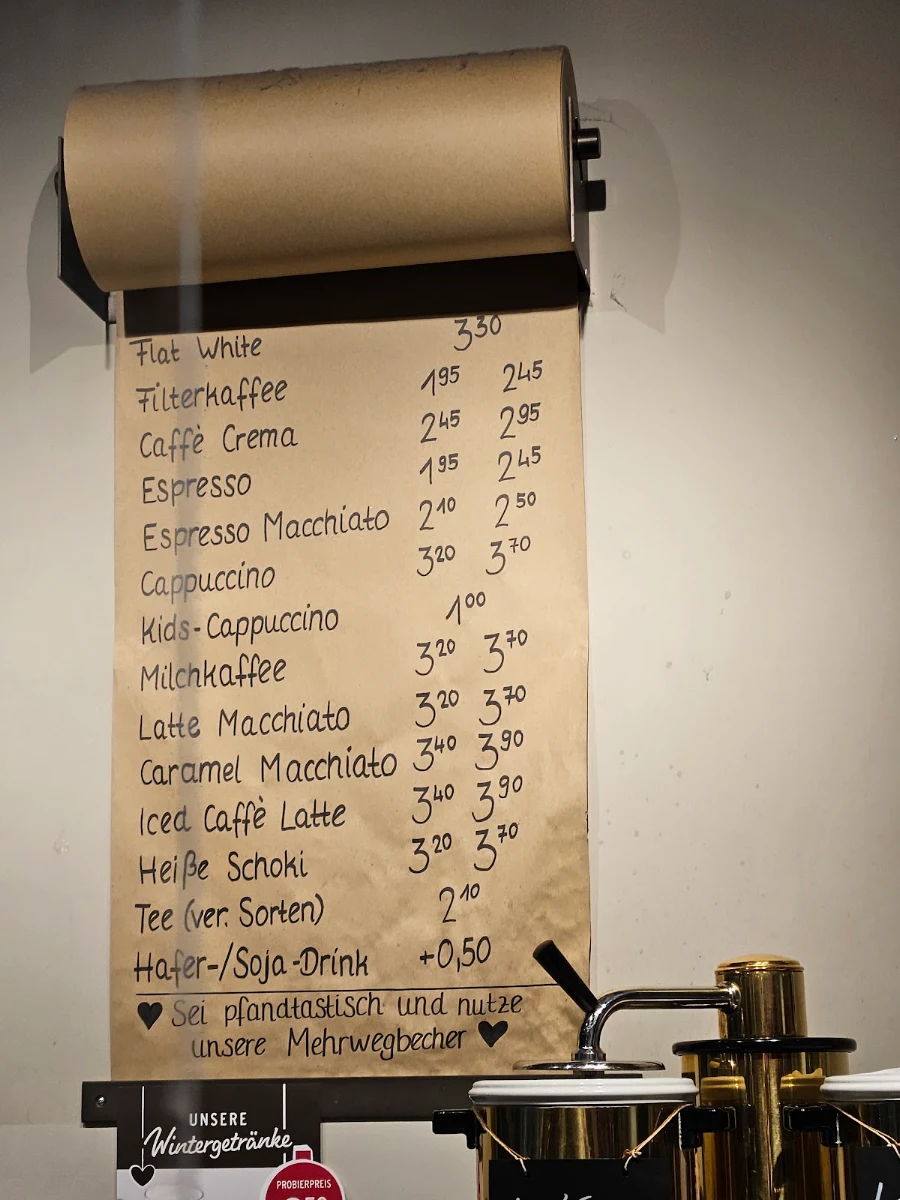 Flat White 3³⁰
Filterkaffee 1⁹⁵ 2⁴⁵
Caffè Crema 2⁴⁵ 2⁹⁵
Espresso 1⁹⁵ 2⁴⁵
Espresso Macchiato 2¹⁰ 2⁵⁰
Cappuccino 3²⁰ 3⁷⁰
Kids-Cappuccino 1⁰⁰
Milchkaffee 3²⁰ 3⁷⁰
Latte Macchiato 3²⁰ 3⁷⁰
Caramel Macchiato 3⁴⁰ 3⁹⁰
Iced Caffè Latte 3⁴⁰ 3⁹⁰
Heiße Schoki 3²⁰ 3⁷⁰
Tee (ver. Sorten) 2¹⁰
Hafer-/Soja-Drink +0,50
♥ Sei pfandtastisch und nutze
unsere Mehrwegbecher ♥
UNSERE
Wintergetränke
PROBIERPREIS